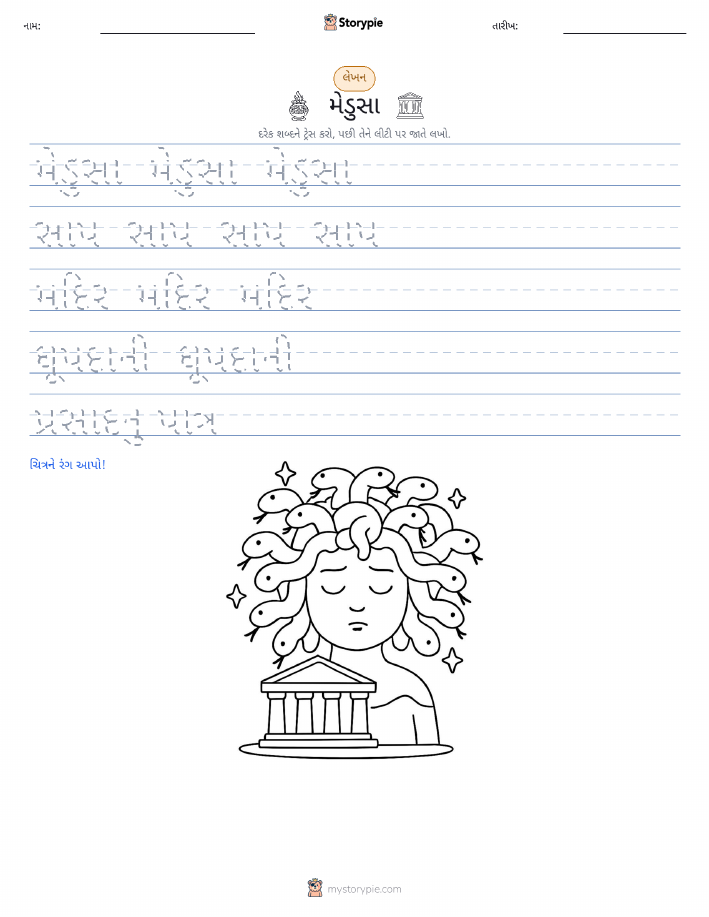 નામ:
Storypie
તારીખ:
લેખન
મેડુસા
દરેક શબ્દને ટ્રેસ કરો, પછી તેને લીટી પર જાતે લખો.
મેડુસા મેડુસા મેડુસા
સાપ સાપ સાપ સાપ
મંદિર મંદિર મંદિર
ધૂપદાની ધૂપદાની
પ્રસાદનું પાત્ર
ચિત્રને રંગ આપો!
mystorypie.com